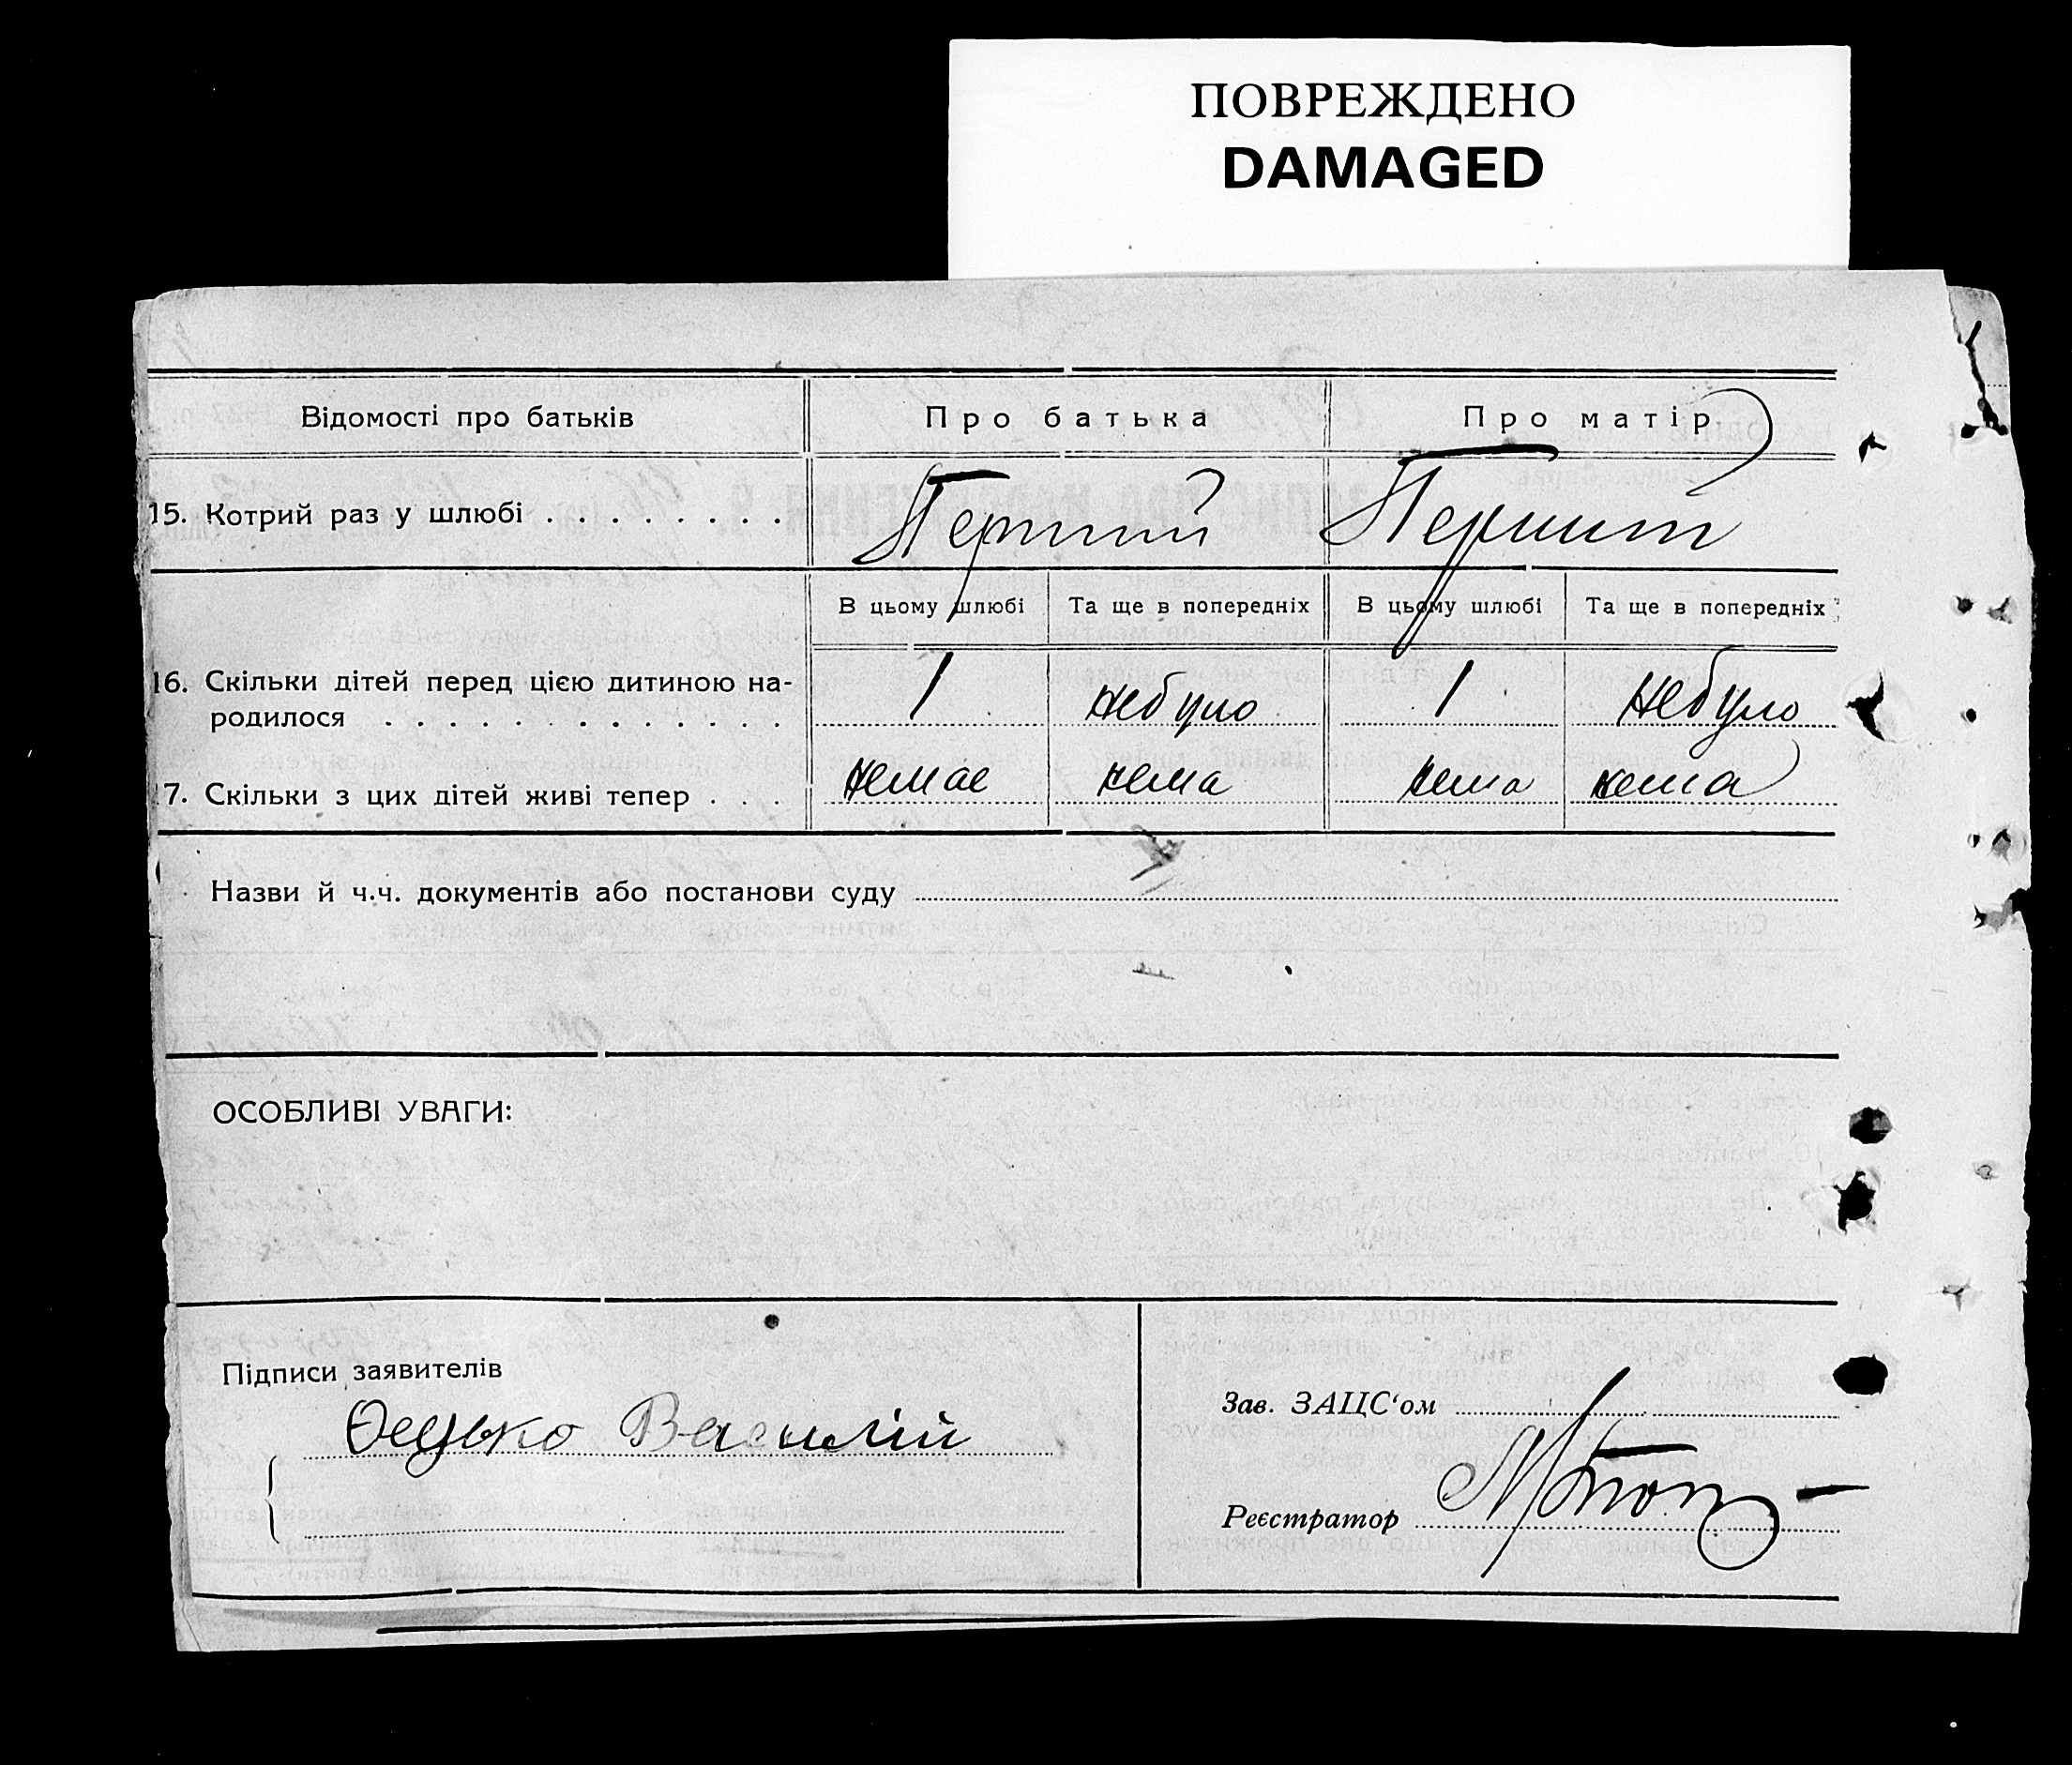 ПОВРЕЖДЕНО
DAMAGED
Відомості про батьків
Про батька
Про матір
15. Котрий раз у шлюбі
Перший
Перший
В цьому шлюбі
Та ще в попередніх
В цьому шлюбі
Та ще в попередніх
16. Скільки дітей перед цією дитиною на-
родилося
1
небуло
1
небуло
7. Скільки з цих дітей живі тепер . . .
немае
нема
нема
нема
Назви й ч.ч. документів або постанови суду
ОСОБЛИВІ УВАГИ:
Підписи заявителів
Василій
Зав. ЗАЦС‘ом
Реєстратор